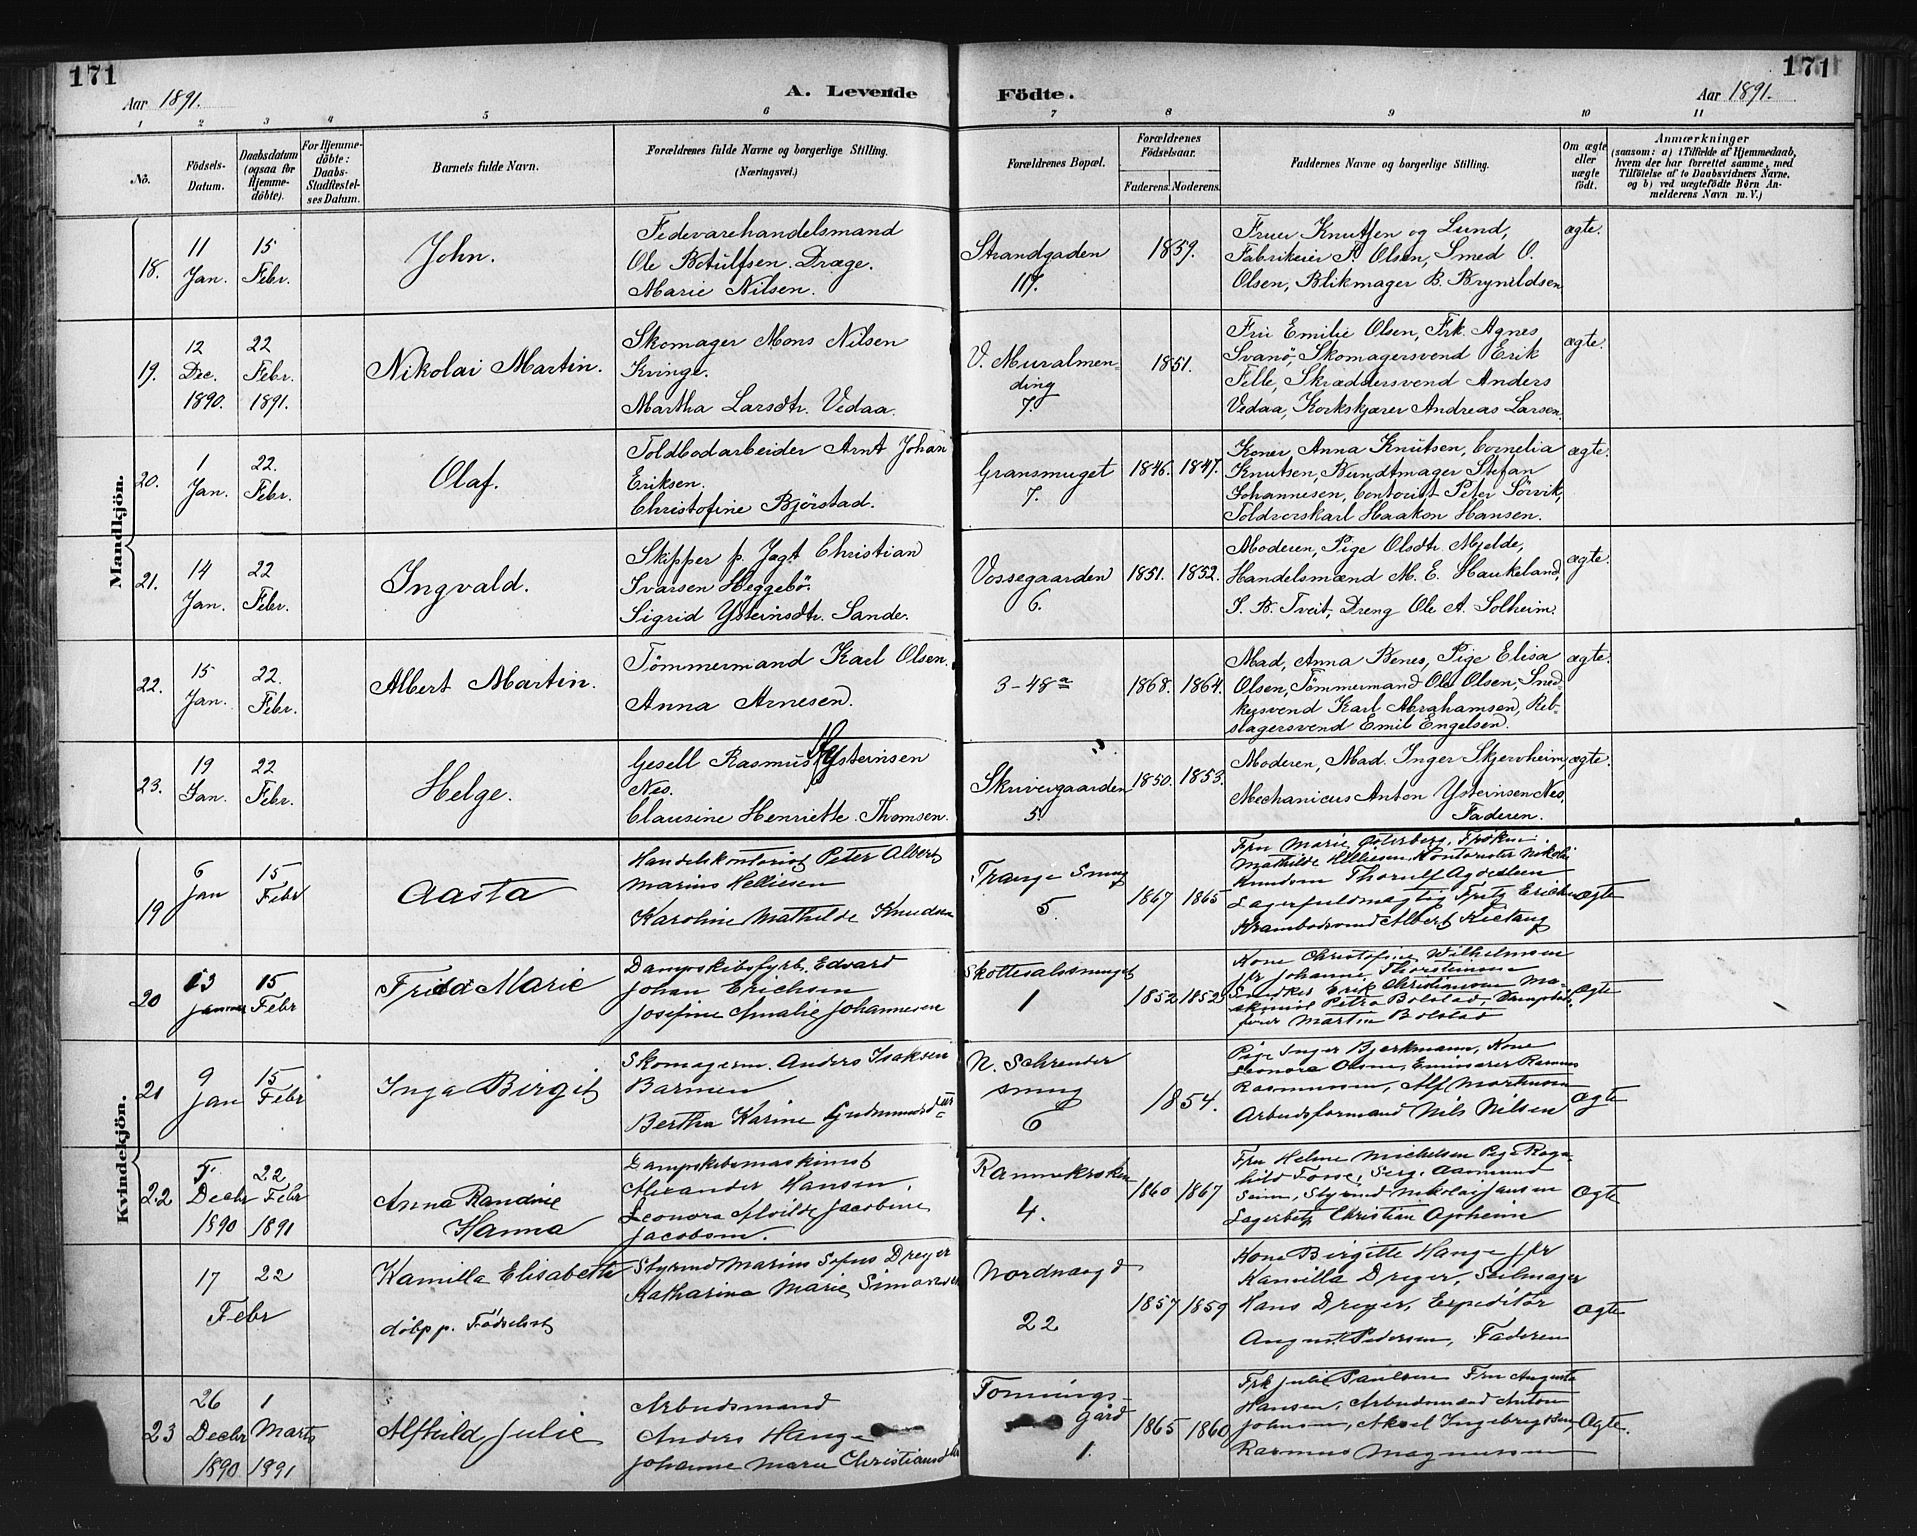 171
171
Aar 1891.
A. Levende
Födte.
Aar 1891.
1 2 3 4 5 6 7 8 9 10 11
No.
Födsels-
Datum.
Daabsdatum
(ogsaa for
Hjemme-
döbte).
For Hjemme-
döbte:
Daabs-
Stadfæstel-
ses Datum.
Barnets fulde Navn.
Forældrenes fulde Navne og borgerlige Stilling.
(Næringsvei.)
Forældrenes Bopæl.
Forældrenes
Födselsaar.
Faderens. Moderens.
Faddernes Navne og borgerlige Stilling.
Om ægte
eller
uægte
født.
Anmærkninger
(saasom: a) i Tilfælde af Hjemmedaab,
hvem der har forrettet samme, med
Tilföielse af to Daabsvidners Navne,
og b) ved uægtefödte Börn An-
melderens Navn m. V.)
Mandkjön.
18.
11
Jan.
15
Febr.
John.
Fedevarehandelsmand
Ole Botulfsen Dræge.
Marie Nilsen.
Strandgaden
117.
1859.
Fruer Knutsen og Lund,
Fabrikeier P. Olsen, Smed O.
Olsen, Blikmager B. Brynildsen
ægte.
19.
12
Dec.
1890.
22
Febr.
1891.
Nikolai Martin.
Skomager Mons Nilsen
Kvinge.
Martha Larsdtr. Vedaa.
V. Muralmen-
ding
7.
1851.
Fru Emilie Olsen, Frk. Agnes
Svanö, Skomagersvend Erik
Felle, Skræddersvend Anders
Vedaa, Korkskjærer Andreas Larsen.
ægte.
20.
1
Jan.
22.
Febr.
Olaf.
Toldbodarbeider Arnt Johan
Eriksen.
Christofine Bjørstad.
Gransmuget
7.
1846. 1847.
Koner Anna Knutsen, Cornelia
Knutsen, Bundtmager Stefan
Johannesen, Contorist Peter Sörvik,
Toldverskarl Haakon Hansen.
ægte.
21.
14
Jan.
22
Febr.
Ingvald.
Skipper p. Jagt Christian
Ivarsen Heggebö.
Sigrid Ysteinsdtr. Sande.
Vossegaarden
6.
1851. 1852.
Moderen, Pige Olsdtr. Mjelde,
Handelsmænd M. E. Haukeland,
J. B. Tveit, Dreng Ole A. Solheim.
ægte.
22.
15
Jan.
22.
Febr.
Albert Martin.
Tömmermand Karl Olsen.
Anna Arnesen.
3-48a
1868. 1864.
Mad. Anna Benes, Pige Elisa
Olsen, Tömmermand Ole Olsen, Sned-
kersvend Karl Abrahamsen, Reb-
slagersvend Emil Engelsen.
ægte.
23.
19
Jan.
22
Febr.
Helge.
Gesell Rasmus Ysteinsen
Nes.
Clausine Henriette Thomsen.
Skrivergaarden
5.
1850. 1853.
Moderen, Mad. Inger Skjervheim
Mechanicus Anton Ysteinsen Nes,
Faderen.
ægte.
Kvindekjön.
19
6
Jan
15
Febr
Aasta
Handelskontorist Peter Albert
Marius Helliesen
Karoline Mathilde Knudsen
Trange Smug
5.
1867 1865
Fru Marie Österberg, Fröken
Mathilde Helliesen, Kontorister Nikolai
Knudsen
Lagerfuldmægtig Fritz Erichsen
Krambodsvend Albert
ægte
20
13
Januar
15
Febr
Frida Marie
Dampskibsfyrb. Edvard
Johan Erichsen
Josefine Amalie Johannesen
Skottesalssmuget
1
1852 1852
Kone Christofine Wilhelmsen
jfr Johanne Thorsteinsen
Snedker Erik Christiansen Ma-
skinist Petro Bolstad, Dampskibs-
förer Martin Bolstad
Ægte
21
9
Jan
15
Febr
Inga Birgit
Skomagerm. Anders Isaksen
Barmen
Bertha Karine Gudmundsdtr
N. Schreuder
smug
6
1854.
Pige Inger Bjerkmann, Kone
Leonora Olsen, Emissærer Rasmus
Rasmussen, Alf Mortensen
Arbeidsformand Nils Nilsen
Ægte
22
5
Decbr
1890
22
Febr
1891
Anna Randine
Hanna
Dampskibsmaskinist
Alexander Hansen,
Leonora Alvilde Jacobine
Jacobsen.
Rammekroken
4.
1860 1867
Fru Helene Michelsen Pige Ragn-
hild Fosse, Serg. Aamund
Seim, Styrmd Nikolai Jansen
Lagerbetj Christian Opheim
Ægte
17 22
Febr
Kamilla Elisabeth
döbp p. Födselsst
Styrmd Marius Sofus Dreyer
Katharina Marie Simonsen
Nordnæsgd
22
1857 1859
Kone Birgitte Hauge jfr
Kamilla Dreyer, Seilmager
Hans Dreyer, Expeditör
August Pedersen, Faderen
Ægte
23
26
Decbr
1890
1
Marts
1891
Alfhild Julie
Arbeidsmand
Anders Hauge
Johanne Marie Christiansdtr
Tonnings-
gård
1.
1865 1860
Frk Julie Paulsen Fru Augusta
Hansen, Arbeidsmænd Anton
Johnsen, Aksel Ingebrigtsen,
Rasmus Magnussen
Ægte.